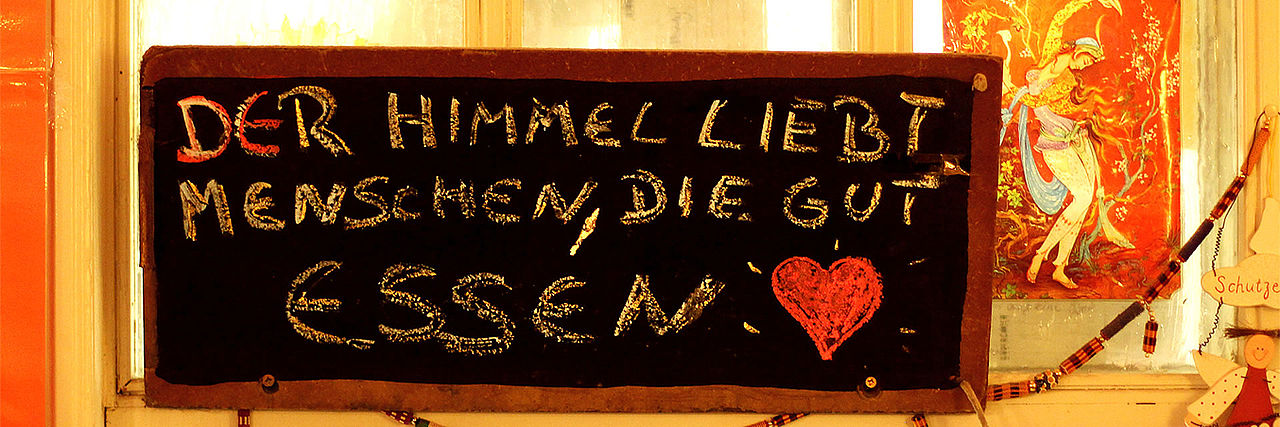 DER HIMMEL LIEBT
MENSCHEN, DIE GUT
ESSEN